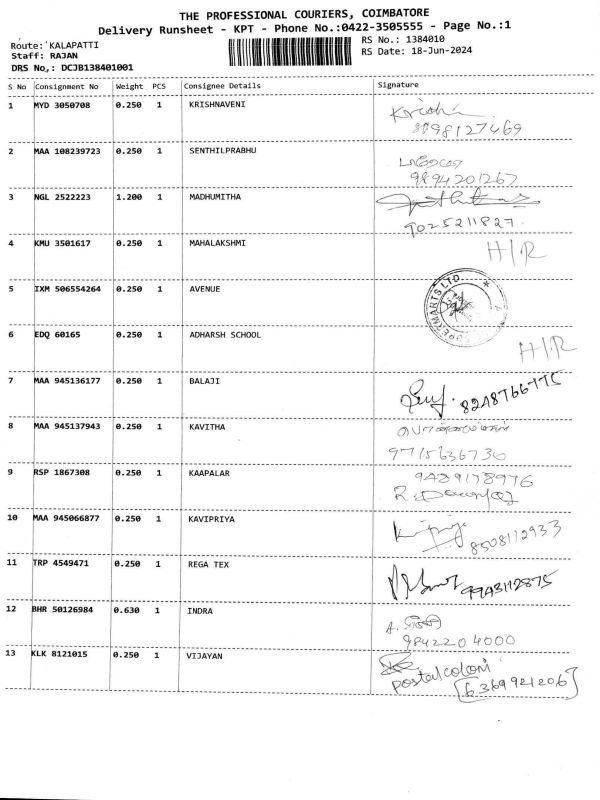 THE PROFESSIONAL COURIERS, COIMBATORE
Delivery Runsheet - KPT - Phone No.:0422-3505555 - Page No.:1
Route: KALAPATTI
RS No.: 1384010
Staff: RAJAN
RS Date: 18-Jun-2024
DRS No,: DCJB138401001
S No Consignment No Weight PCS Consignee Details Signature
1 MYD 3050708 0.250 1 KRISHNAVENI
98127469
2 MAA 108239723 0.250 1 SENTHILPRABHU
9894201267
3 NGL 2522223 1.200 1 MADHUMITHA
9025211827
4 KMU 3501617 0.250 1 MAHALAKSHMI H/R
5 IXM 506554264 0.250 1 AVENUE
6 EDQ 60165 0.250 1 ADHARSH SCHOOL H/R
7 MAA 945136177 0.250 1 BALAJI 8248766775
8 MAA 945137943 0.250 1 KAVITHA
9715636730
9 RSP 1867308 0.250 1 KAAPALAR 9489178976
10 MAA 945066877 0.250 1 KAVIPRIYA 8508112933
11 TRP 4549471 0.250 1 REGA TEX 9943112875
12 BHR 50126984 0.630 1 INDRA
9842204000
13 KLK 8121015 0.250 1 VIJAYAN
Postal coloni
6369921206